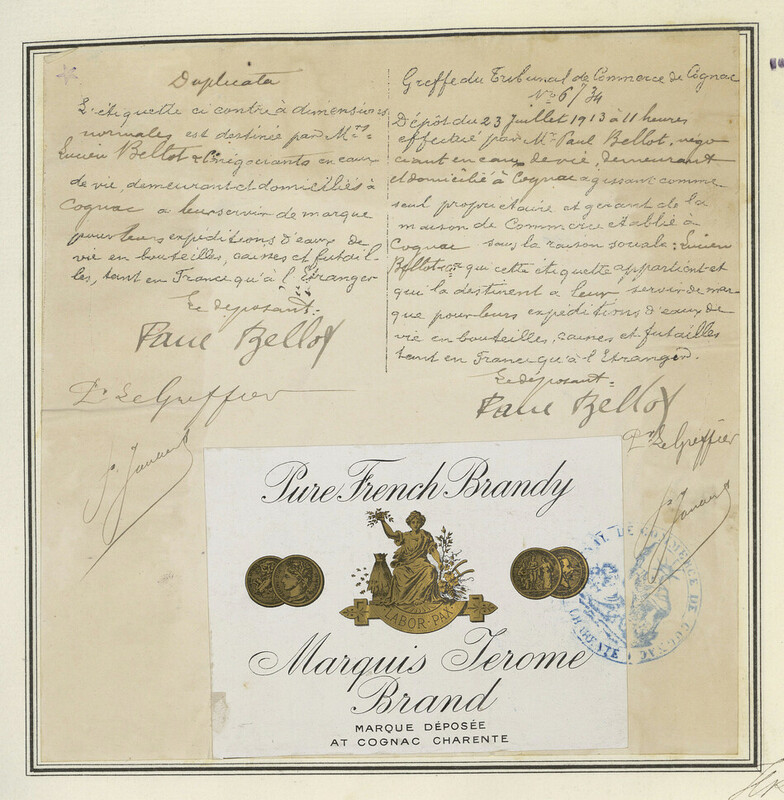 Duplicata
L'étiquette ci contre à dimensions
normales est destinée par Mrs
Lucien Bellot & Cie négociants en eaux
de vie, demeurant et domiciliés à
Cognac a leur servir de marque
pour leurs expéditions d'eaux de
vie en bouteilles, caisses et futail-
les, tant en France qu'à l'Etranger
Le déposant:
Paul Bellot
Pr Le Greffier
Greffe du Tribunal de Commerce de Cognac
No 67 34
Dépôt du 23 Juillet 1913 à 11 heures
effectué par Mr Paul Bellot, négo
ciant en eaux de vie, demeurant
et domicilié à Cognac agissant comme
seul propriétaire et gérant de la
maison de Commerce établie à
Cognac sous la raison sociale: Lucien
Bellot & Cie qui cette étiquette appartient et
qui la destinent a leur servir de mar-
que pour leurs expéditions d'eaux de
vie en bouteilles, caisses et futailles
tant en France qu'à l'Etranger.
Le déposant:
Paul Bellot
Pr Le Greffier
Pure French Brandy
LABOR-PAX
Marquis Jerome
Brand
MARQUE DÉPOSÉE
AT COGNAC CHARENTE
DE COMMERCE DE COGNAC
CHARENTE